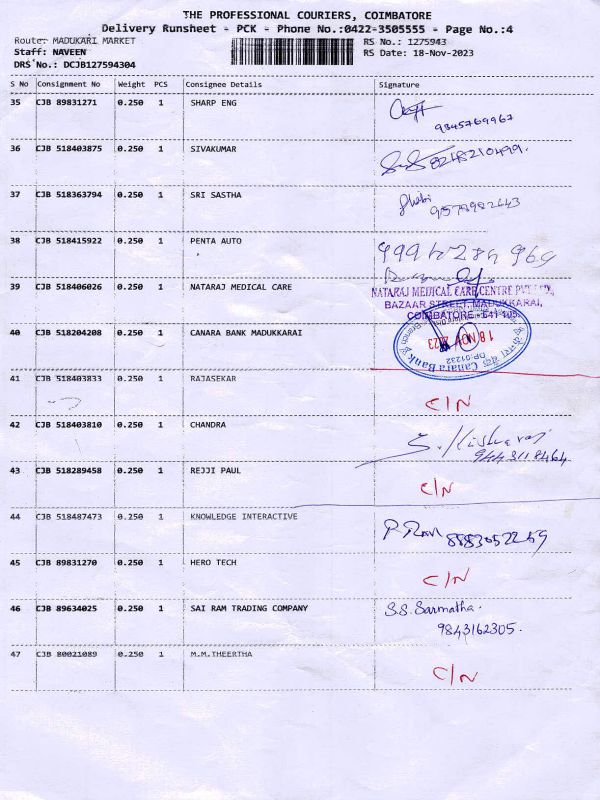 THE PROFESSIONAL COURIERS, COIMBATORE
Delivery Runsheet - PCK - Phone No.:0422-3505555 - Page No.:4
Route: MADUKARI MARKET
RS No.: 1275943
Staff: NAVEEN
RS Date: 18-Nov-2023
DRS No.: DCJB127594304
S No Consignment No Weight PCS Consignee Details Signature
35 CJB 89831271 0.250 1 SHARP ENG
9345769967
36 CJB 518403875 0.250 1 SIVAKUMAR
8248210499.
37 CJB 518363794 0.250 1 SRI SASTHA
38 CJB 518415922 0.250 1 PENTA AUTO
39 CJB 518406026 0.250 1 NATARAJ MEDICAL CARE
NATARAJ MEDICAL CARE CENTRE PVT LTD,
BAZAAR STREET, MADUKKARAI,
COIMBATORE - 641 105.
40 CJB 518204208 0.250 1 CANARA BANK MADUKKARAI
18 NOV 2023
DP:01232
Canara Bank
41 CJB 518403833 0.250 1 RAJASEKAR
C/N
42 CJB 518403810 0.250 1 CHANDRA
9443118464
43 CJB 518289458 0.250 1 REJJI PAUL
C/N
44 CJB 518487473 0.250 1 KNOWLEDGE INTERACTIVE
8883052269
45 CJB 89831270 0.250 1 HERO TECH
C/N
46 CJB 89634025 0.250 1 SAI RAM TRADING COMPANY
S.S. Sarmatha.
9843162305.
47 CJB 80021089 0.250 1 M.M.THEERTHA
C/N